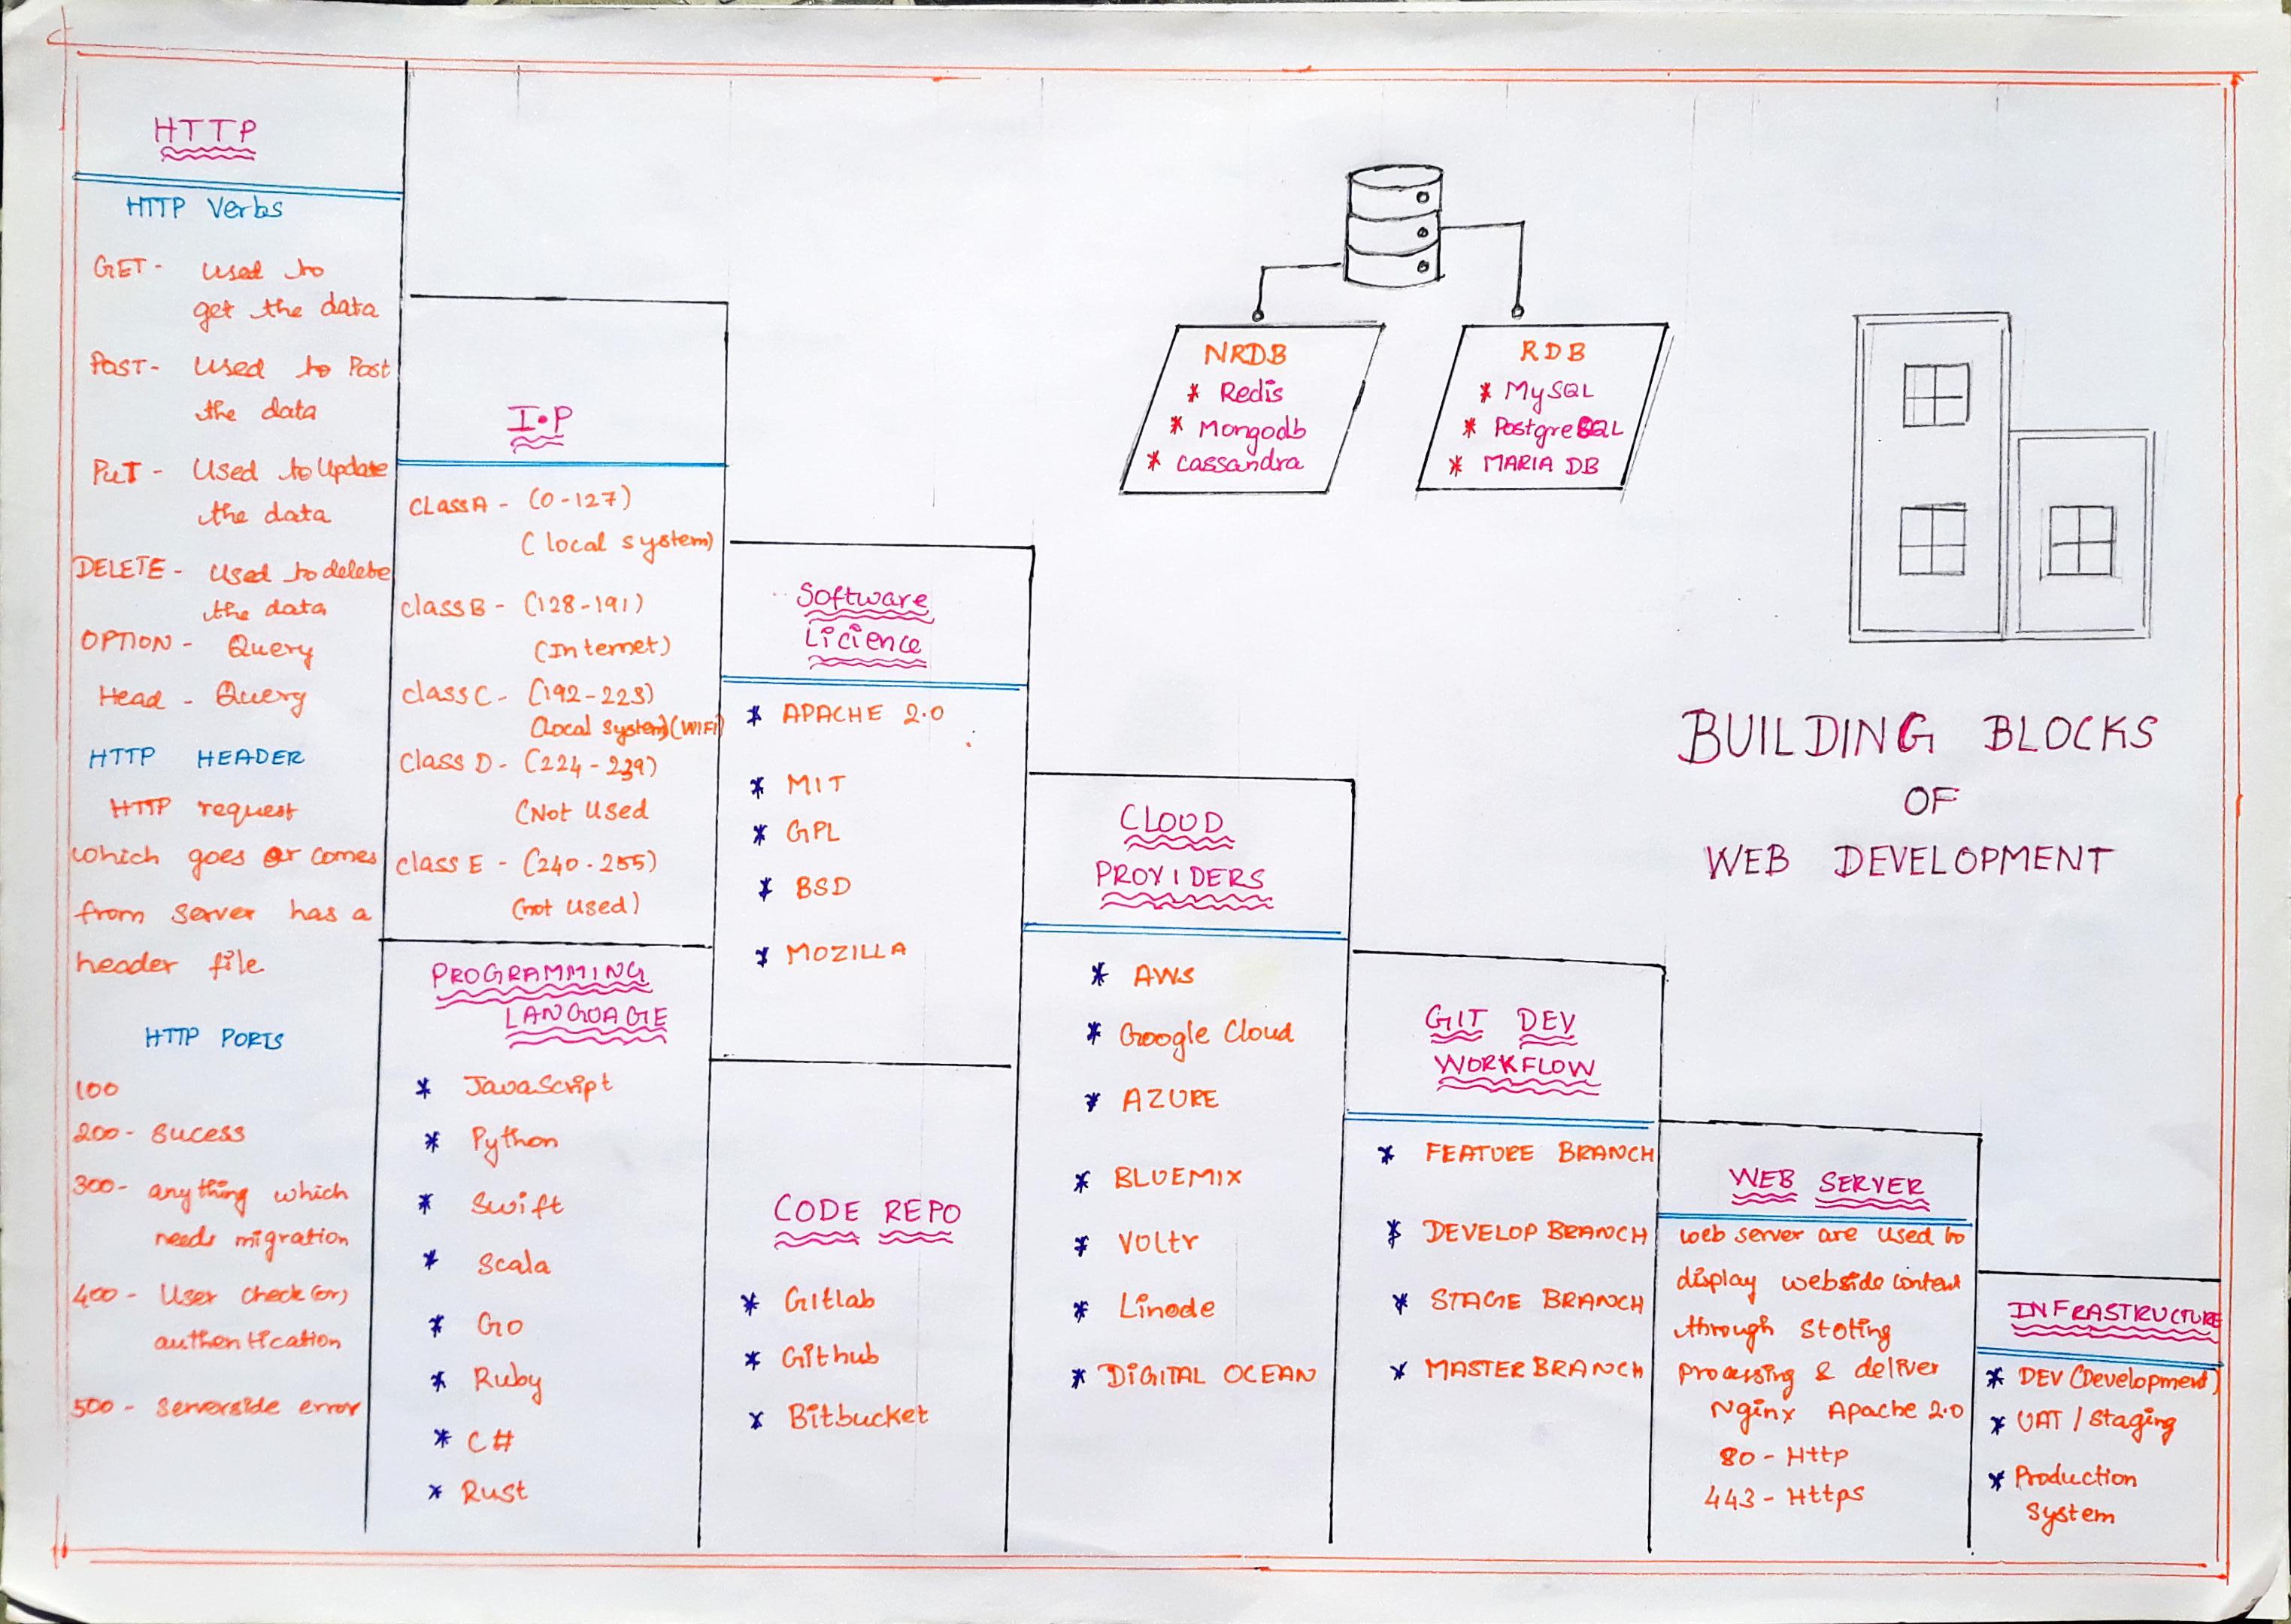 HTTP
HTTP Verbs
GET- used to
get the data
POST- used to Post
the data
PUT - Used to Update
the data
DELETE - used to delete
the data
OPTION - Query
Head - Query
HTTP HEADER
HTTP request
which goes or comes
from server has a
header file
HTTP PORTS
100
200- sucess
300- anything which
needs migration
400- User check (or)
authentication
500- Serverside error
I.P
CLASS A - (0-127)
(local system)
class B - (128-191)
(Internet)
class C - (192-223)
(local system) (WIFI)
class D - (224-239)
(Not Used
class E - (240-255)
(not used)
PROGRAMMING
LANGUAGE
* JavaScript
* Python
* Swift
* Scala
* Go
* Ruby
* C#
* Rust
Software
Licience
* APACHE 2.0
* MIT
* GPL
* BSD
* MOZILLA
CODE REPO
* Gitlab
* Github
* Bitbucket
CLOUD
PROVIDERS
* AWS
* Google Cloud
* AZURE
* BLUEMIX
* Voltr
* Linode
* DIGITAL OCEAN
NRDB
* Redis
* Mongodb
* cassandra
RDB
* MySQL
* PostgreSQL
* MARIA DB
BUILDING BLOCKS
OF
WEB DEVELOPMENT
GIT DEV
WORKFLOW
* FEATURE BRANCH
* DEVELOP BRANCH
* STAGE BRANCH
* MASTER BRANCH
WEB SERVER
web server are used to
display webside content
through stoting
processing & deliver
Nginx Apache 2.0
80 - Http
443 - Https
INFRASTRUCTURE
* DEV (Development)
* UAT / Staging
* Production
System